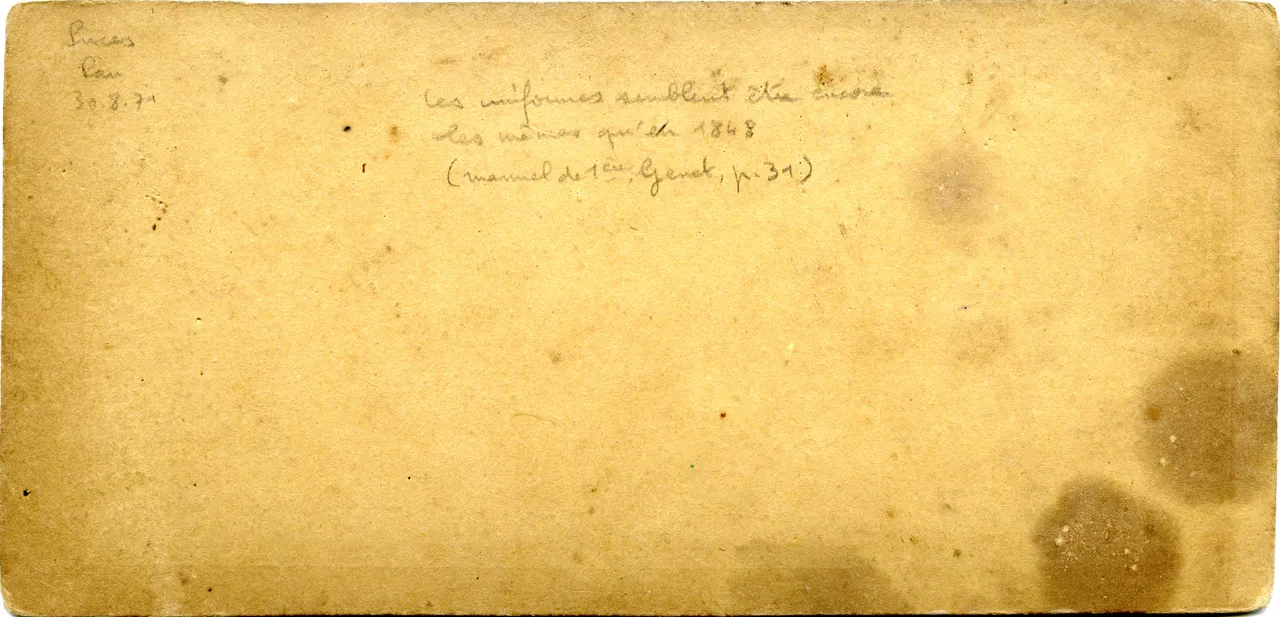 Puces
Pau
30.8.71
Les uniformes semblent être encore
les mêmes qu'en 1848
(manuel de 1ère, Genet, p. 31)